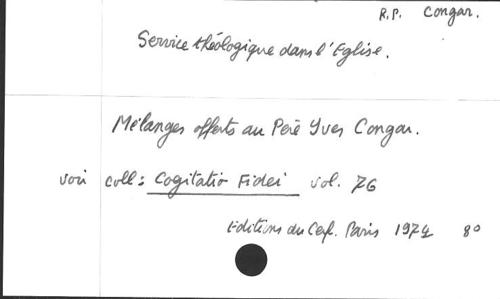 R.P. Congar.
Service théologique dans l'Eglise.
Mélanges offerts au Père Yves Congar.
voir coll: Cogitatio Fidei vol. 76
Editions du Cerf. Paris 1974 8°